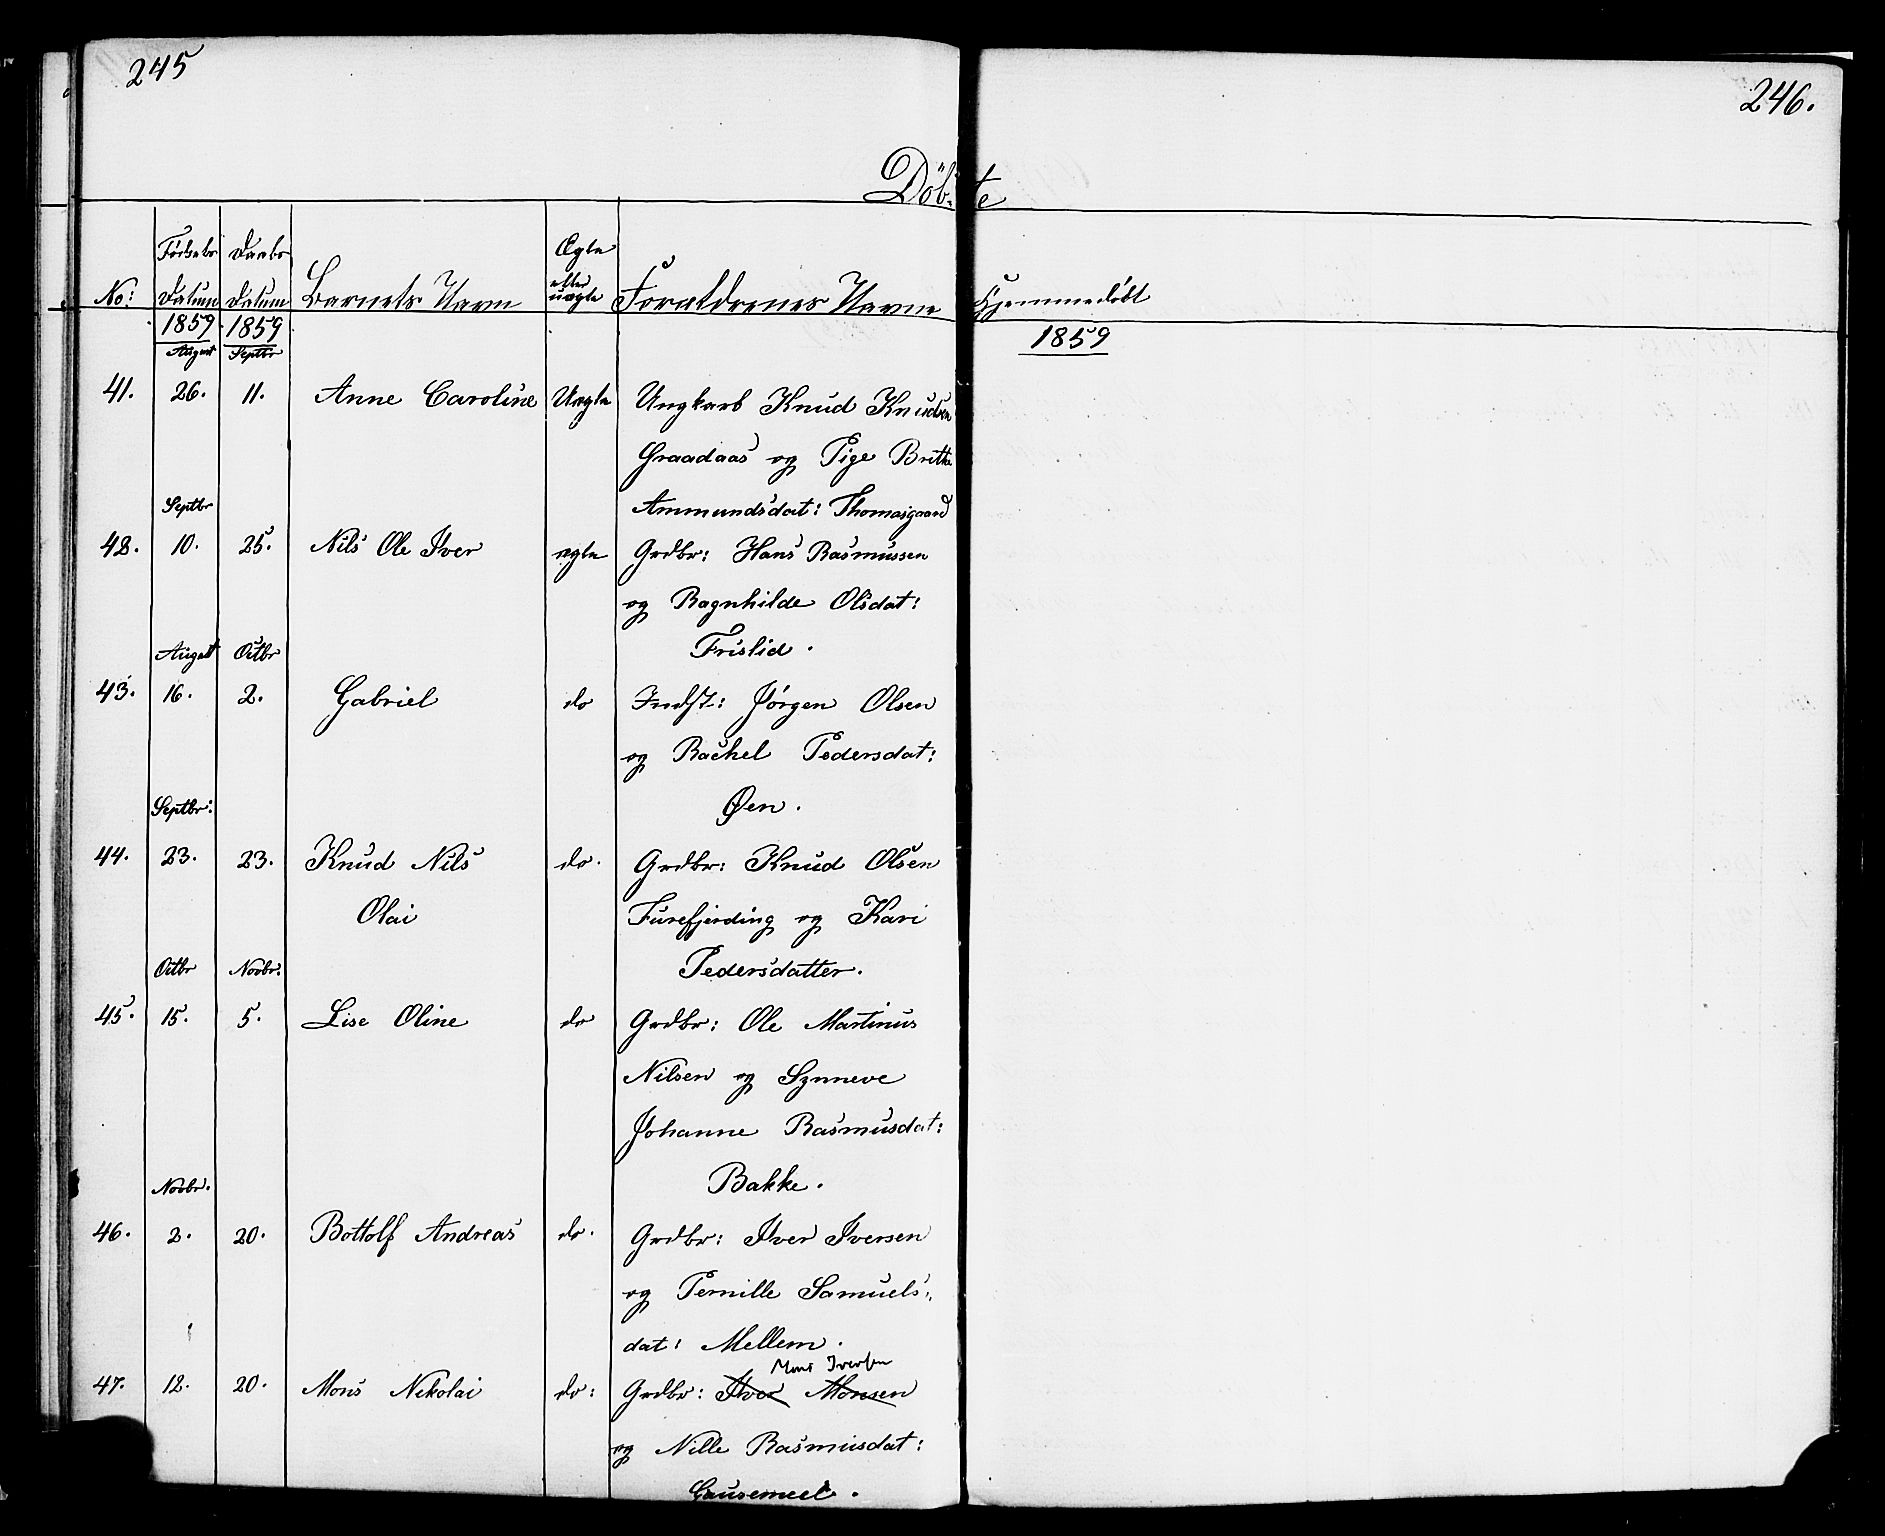 245
246.
Döb- te
No:
Födsels Datum
Daabs Datum
Barnets Navn
Ægte eller uægte
Forældrenes Navne
Hjemmedöbt
1859 1859 1859
August Septbr
41. 26. 11. Anne Caroline Uægte Ungkarl Knud Knudsen
Graadaas og Pige Britha
Septbr Ammundsdat: Thomasgaard
42. 10. 25. Nils Ole Iver ægte Grdbr: Hans Rasmussen
og Ragnhilde Olsdat:
August Octbr Frislid.
43. 16. 2. Gabriel do Indst: Jörgen Olsen
og Rachel Pedersdat:
Septbr: Øen.
44. 23. 23. Knud Nils do. Grdbr: Knud Olsen
Olai Furefjerding og Kari
Octbr Novbr. Pedersdatter.
45. 15. 5. Lise Oline do Grdbr: Ole Martinus
Nilsen og Synneve
Johanne Rasmusdat:
Novbr. Bakke.
46. 2. 20. Bottolf Andreas do. Grdbr: Iver Iversen
og Pernille Samuels-
dat: Mellem.
Mons Iversen
47. 12. 20. Mons Nikolai do: Grdbr: Iver Monsen
og Nille Rasmusdat: